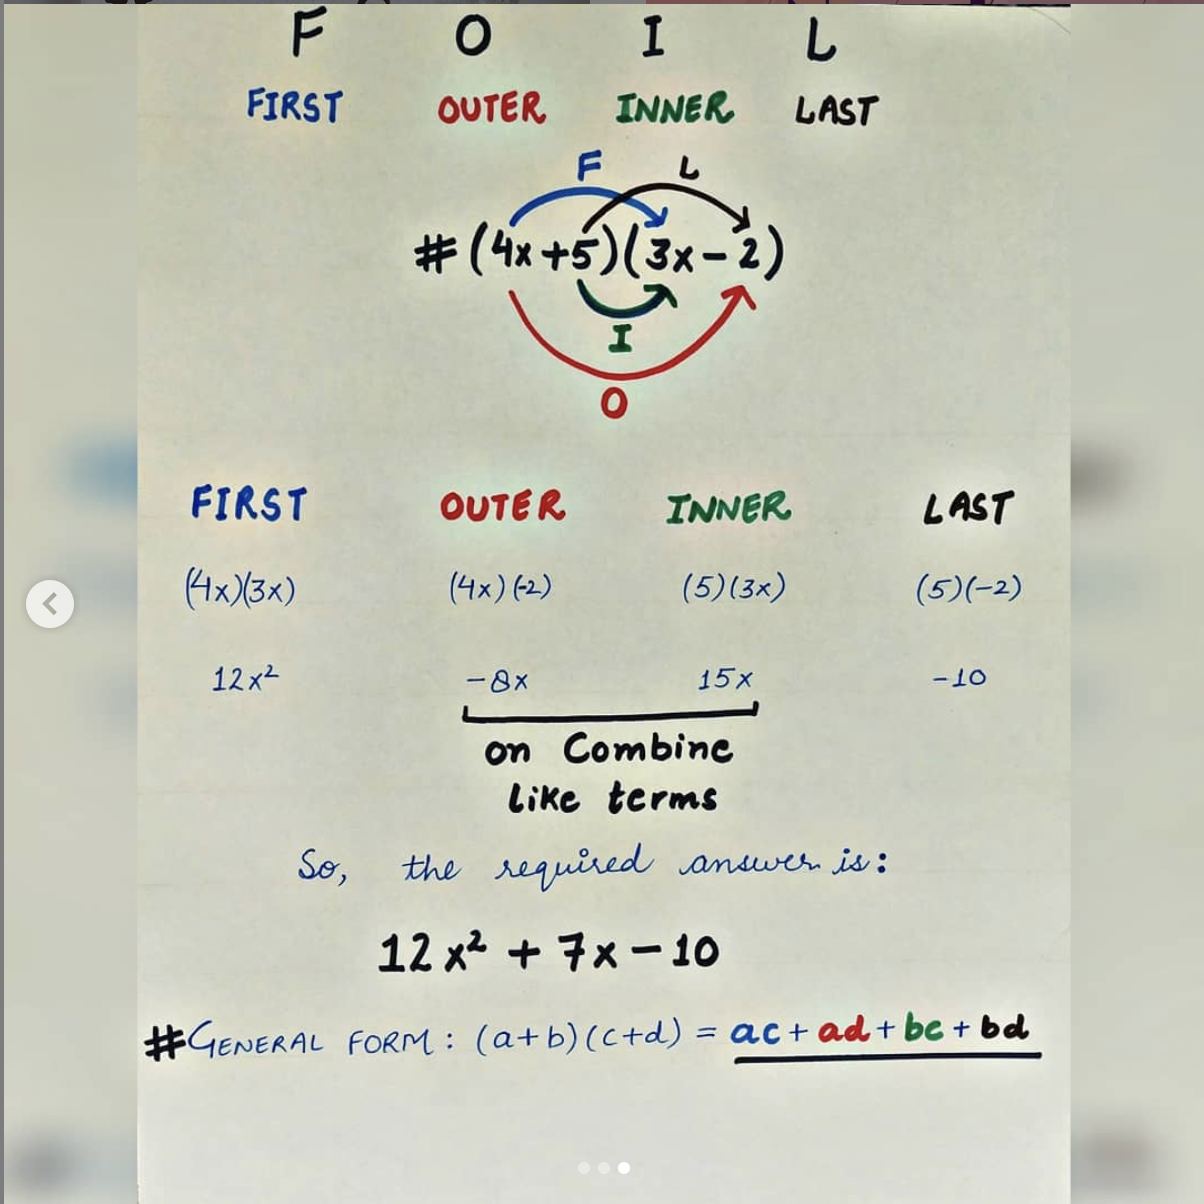 F O I L
FIRST OUTER INNER LAST
F L
# (4x+5)(3x-2)
I
O
FIRST OUTER INNER LAST
(4x)(3x) (4x)(-2) (5)(3x) (5)(-2)
12x² -8x 15x -10
on Combine
Like terms
So, the required answer is:
12x² + 7x - 10
#GENERAL FORM: (a+b)(c+d) = ac + ad + bc + bd